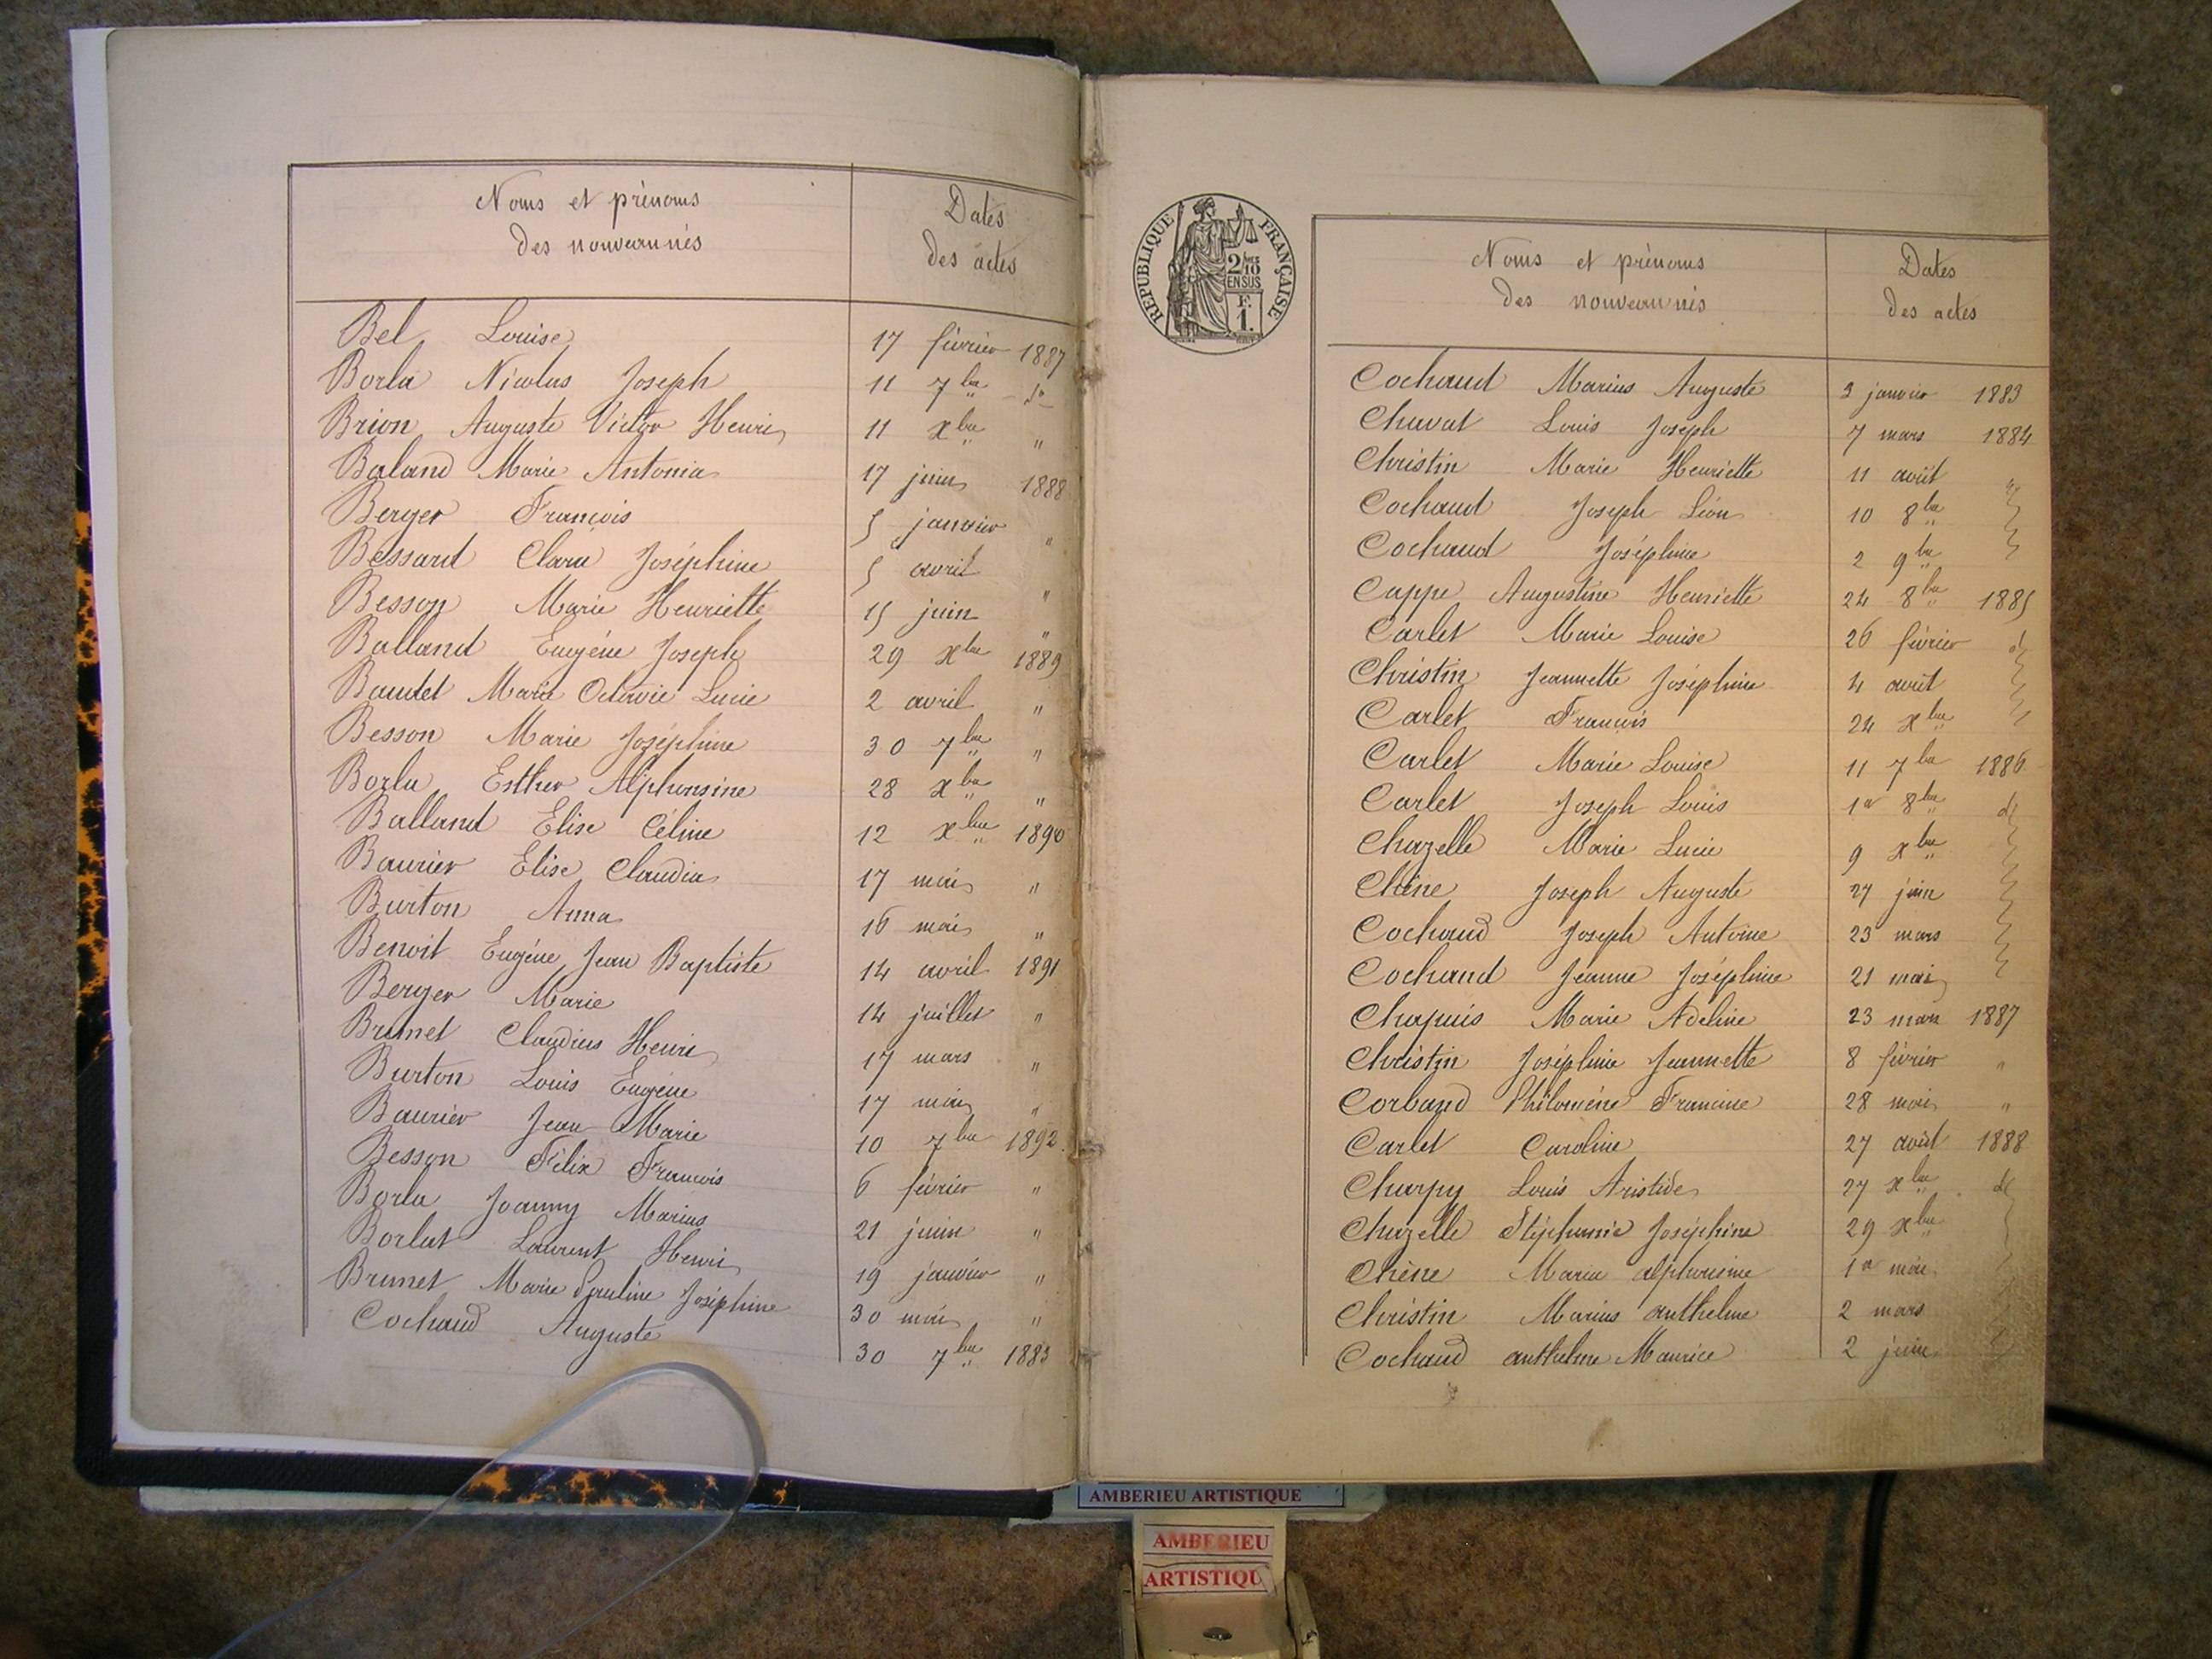 Noms et prénoms
des nouveaunés
Dates
des actes
Bel Louise 17 février 1887
Borla Nicolas Joseph 11 7bre do
Brion Auguste Victor Henri 11 xbre "
Baland Marie Antonia 17 juin 1888
Berger François 5 janvier "
Bessard Claire Joséphine 5 avril "
Besson Marie Henriette 15 juin "
Balland Eugène Joseph 29 xbre 1889
Baudet Marie Octavie Lucie 2 avril "
Besson Marie Joséphine 30 7bre "
Borla Esther Alphonsine 28 xbre "
Balland Elise Céline 12 xbre 1890
Baurier Elise Claudia 17 mai "
Burton Anna 16 mai "
Benoit Eugène Jean Baptiste 14 avril 1891
Berger Marie 14 juillet "
Brunet Claudius Henri 17 mars "
Burton Louis Eugène 17 mai "
Baurier Jean Marie 10 7bre 1892
Besson Félix François 6 février "
Borla Joanny Marius 21 juin "
Borlat Laurent Henri 19 janvier "
Brunet Marie Pauline Joséphine 30 mai "
Cochaud Auguste 30 7bre 1883
REPUBLIQUE FRANÇAISE
2/10
EN SUS
F.
1.
Noms et prénoms
des nouveaunés
Dates
des actes
Cochaud Marius Auguste 3 janvier 1883
Chavat Louis Joseph 7 mars 1884
Christin Marie Henriette 11 août
Cochaud Joseph Léon 10 8bre
Cochaud Joséphine 2 9bre
Cappe Augustine Henriette 24 8bre 1885
Carlet Marie Louise 26 février do
Christin Jeannette Joséphine 4 août
Carlet François 24 xbre
Carlet Marie Louise 11 7bre 1886
Carlet Joseph Louis 1er 8bre do
Chazelle Marie Lucie 9 xbre
Chêne Joseph Auguste 27 juin
Cochaud Joseph Antoine 23 mars
Cochaud Jeanne Joséphine 21 mai
Chapuis Marie Adeline 23 mars 1887
Christin Joséphine Jeannette 8 février "
Corbaud Philomène Francine 28 mai "
Carlet Caroline 27 août 1888
Charpy Louis Aristide 27 xbre do
Chazelle Stéphanie Joséphine 29 xbre
Chêne Maria alphonsine 1er mai
Christin Marius anthelme 2 mars
Cochaud anthelme Maurice 2 juin
AMBERIEU ARTISTIQUE
AMBERIEU
ARTISTIQU